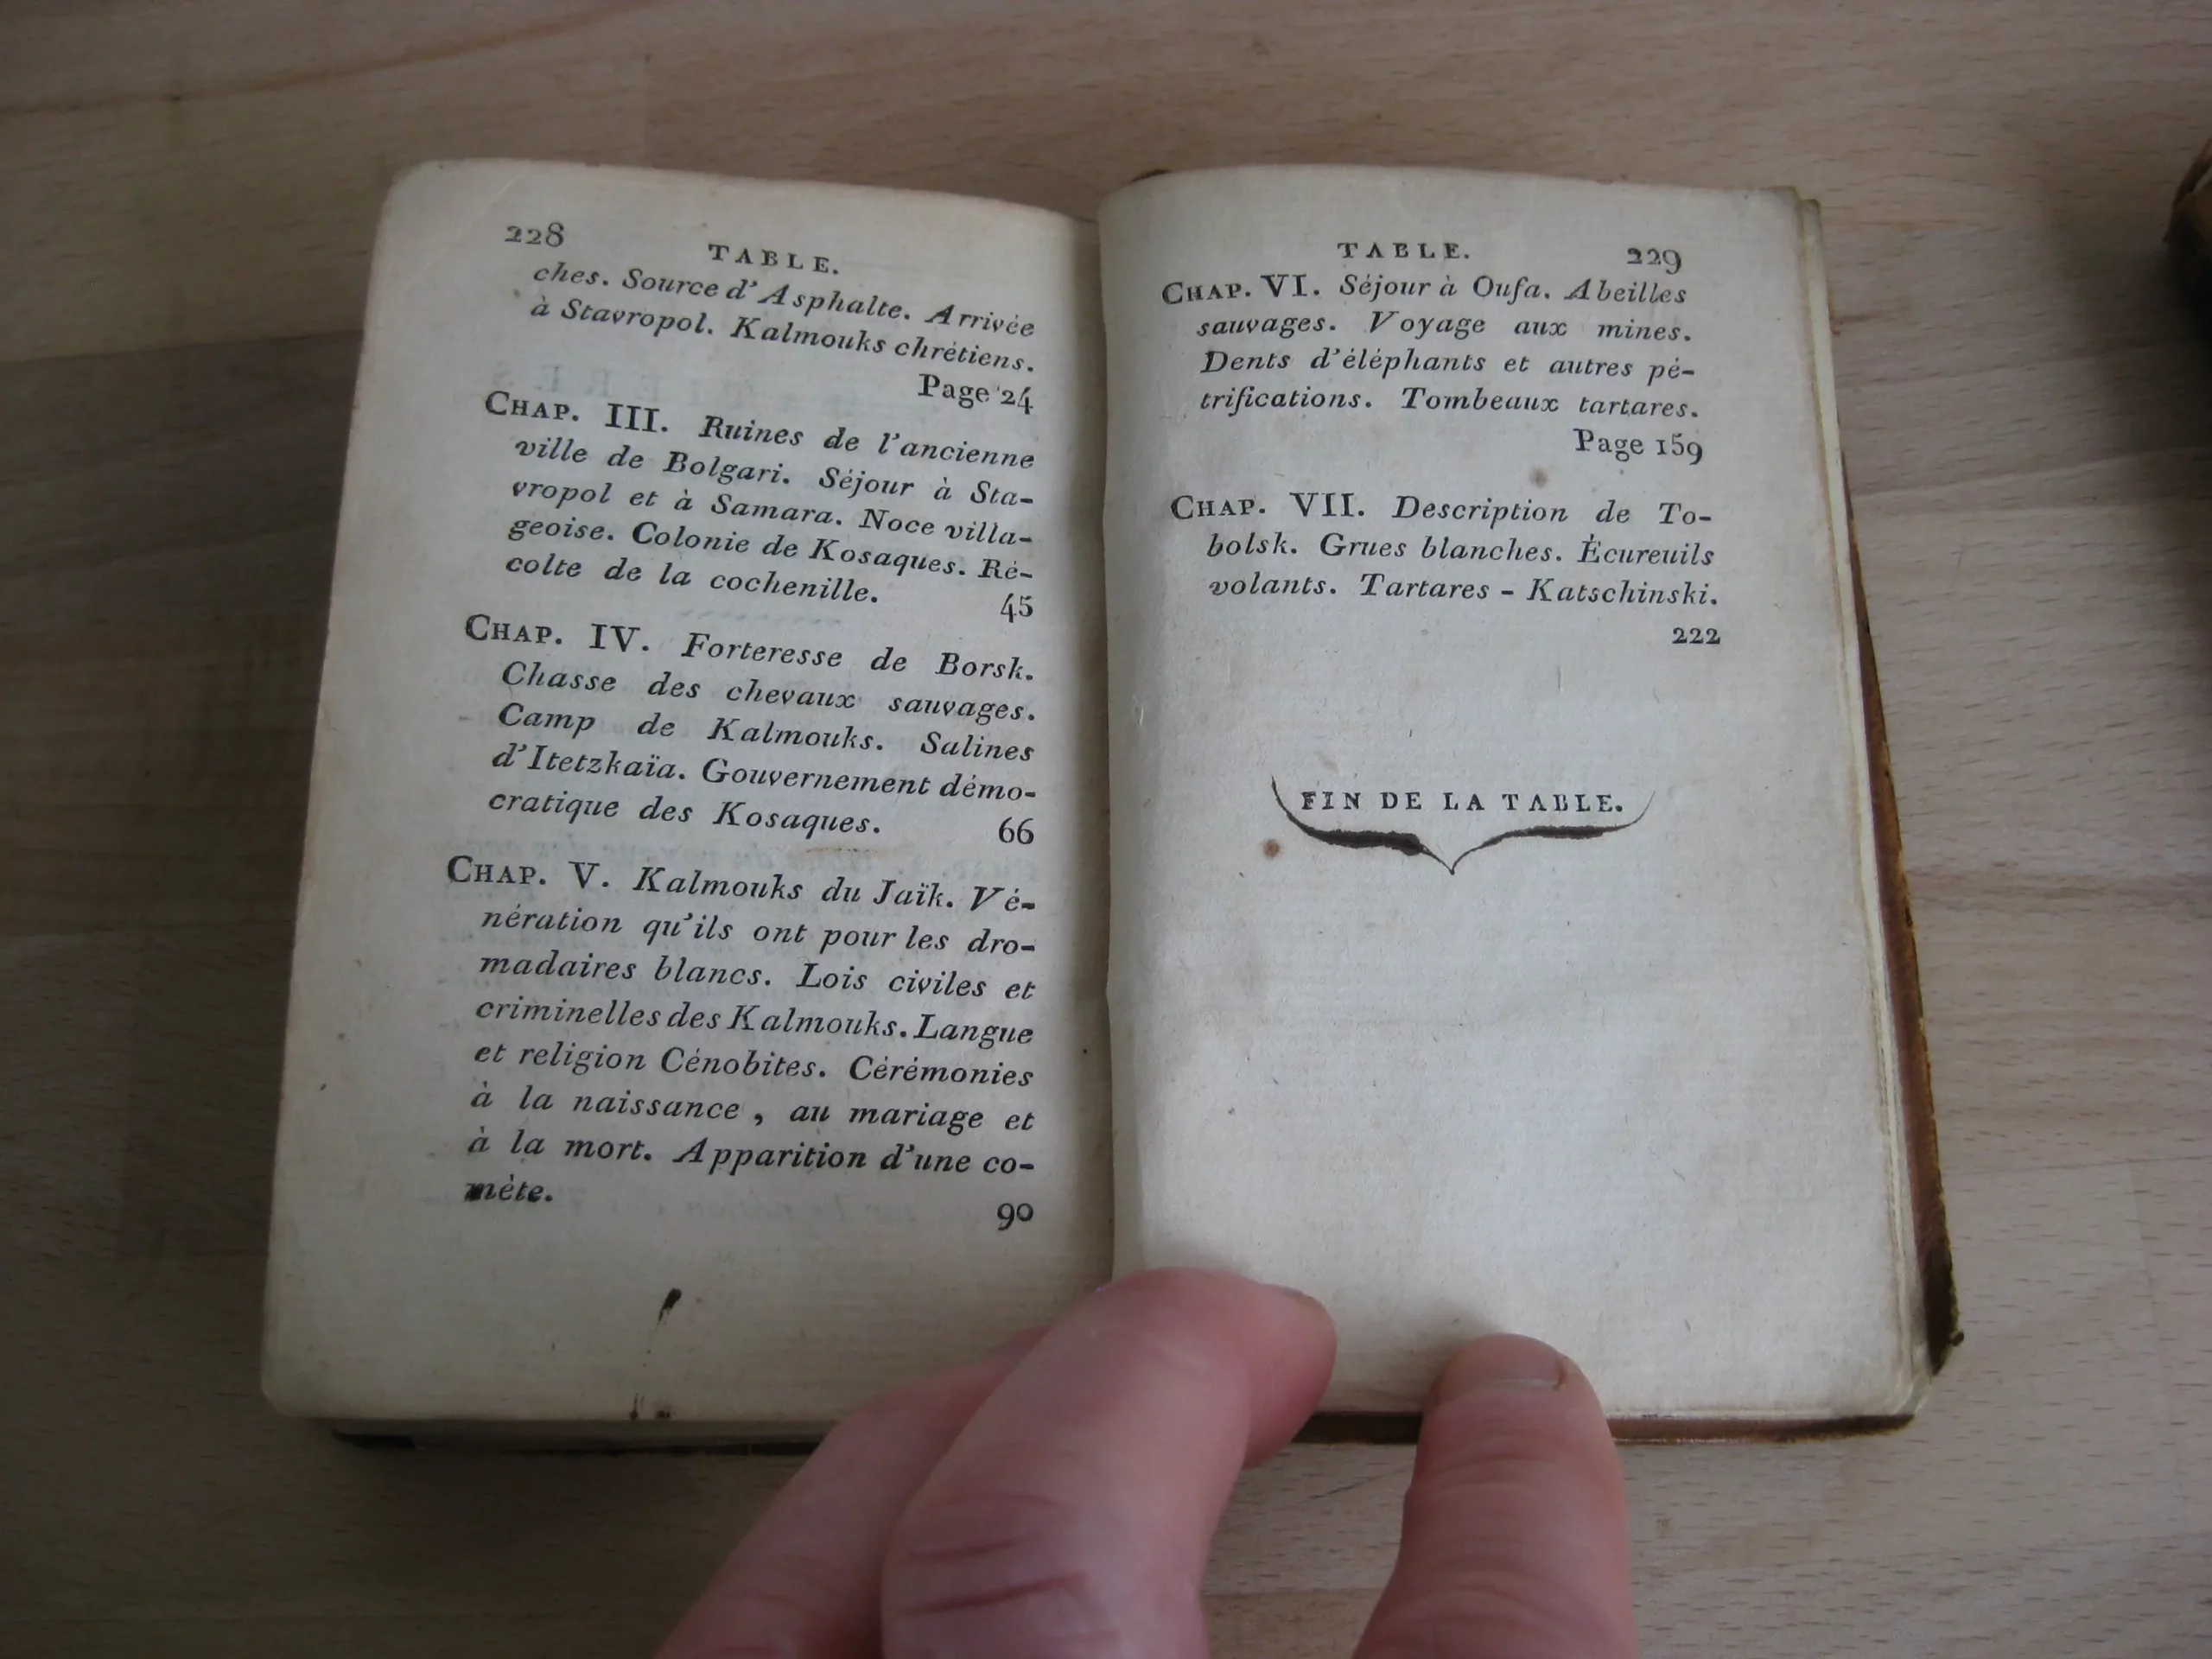 228
TABLE.
ches. Source d'Asphalte. Arrivée
à Stavropol. Kalmouks chrétiens.
Page 24
CHAP. III. Ruines de l'ancienne
ville de Bolgari. Séjour à Sta-
vropol et à Samara. Noce villa-
geoise. Colonie de Kosaques. Ré-
colte de la cochenille. 45
CHAP. IV. Forteresse de Borsk.
Chasse des chevaux sauvages.
Camp de Kalmouks. Salines
d'Itetzkaïa. Gouvernement démo-
cratique des Kosaques. 66
CHAP. V. Kalmouks du Jaïk. Vé-
nération qu'ils ont pour les dro-
madaires blancs. Lois civiles et
criminelles des Kalmouks. Langue
et religion Cénobites. Cérémonies
à la naissance, au mariage et
à la mort. Apparition d'une co-
mète. 90
TABLE. 229
CHAP. VI. Séjour à Oufa. Abeilles
sauvages. Voyage aux mines.
Dents d'éléphants et autres pé-
trifications. Tombeaux tartares.
Page 159
CHAP. VII. Description de To-
bolsk. Grues blanches. Écureuils
volants. Tartares - Katschinski.
222
FIN DE LA TABLE.